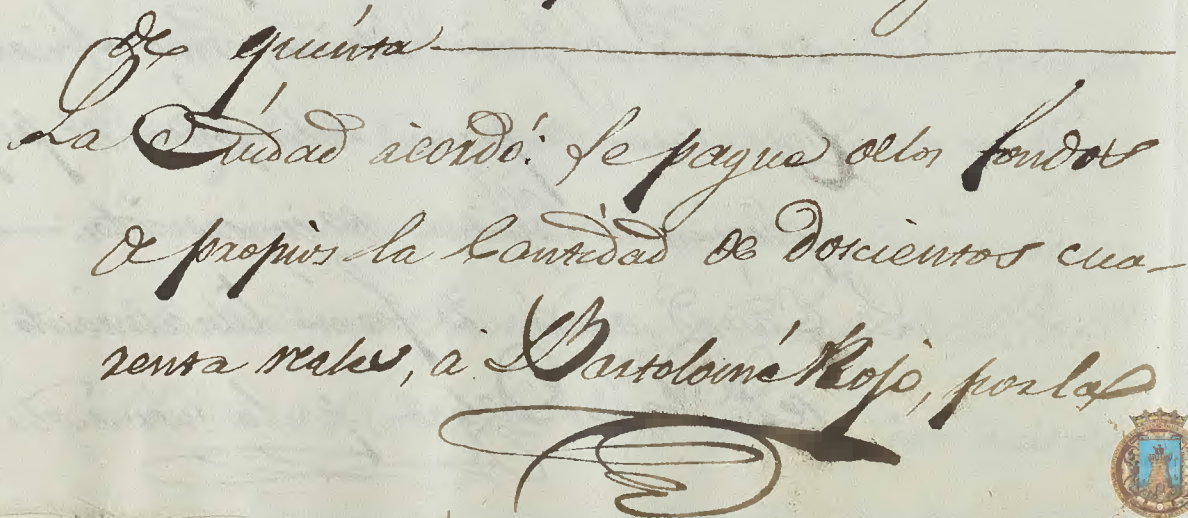 de quinta
La Ciudad acordó: se pague delos fondos
de propios la Cantidad de Doscientos cua-
renta reales, a Bartolomé Rojo, por las